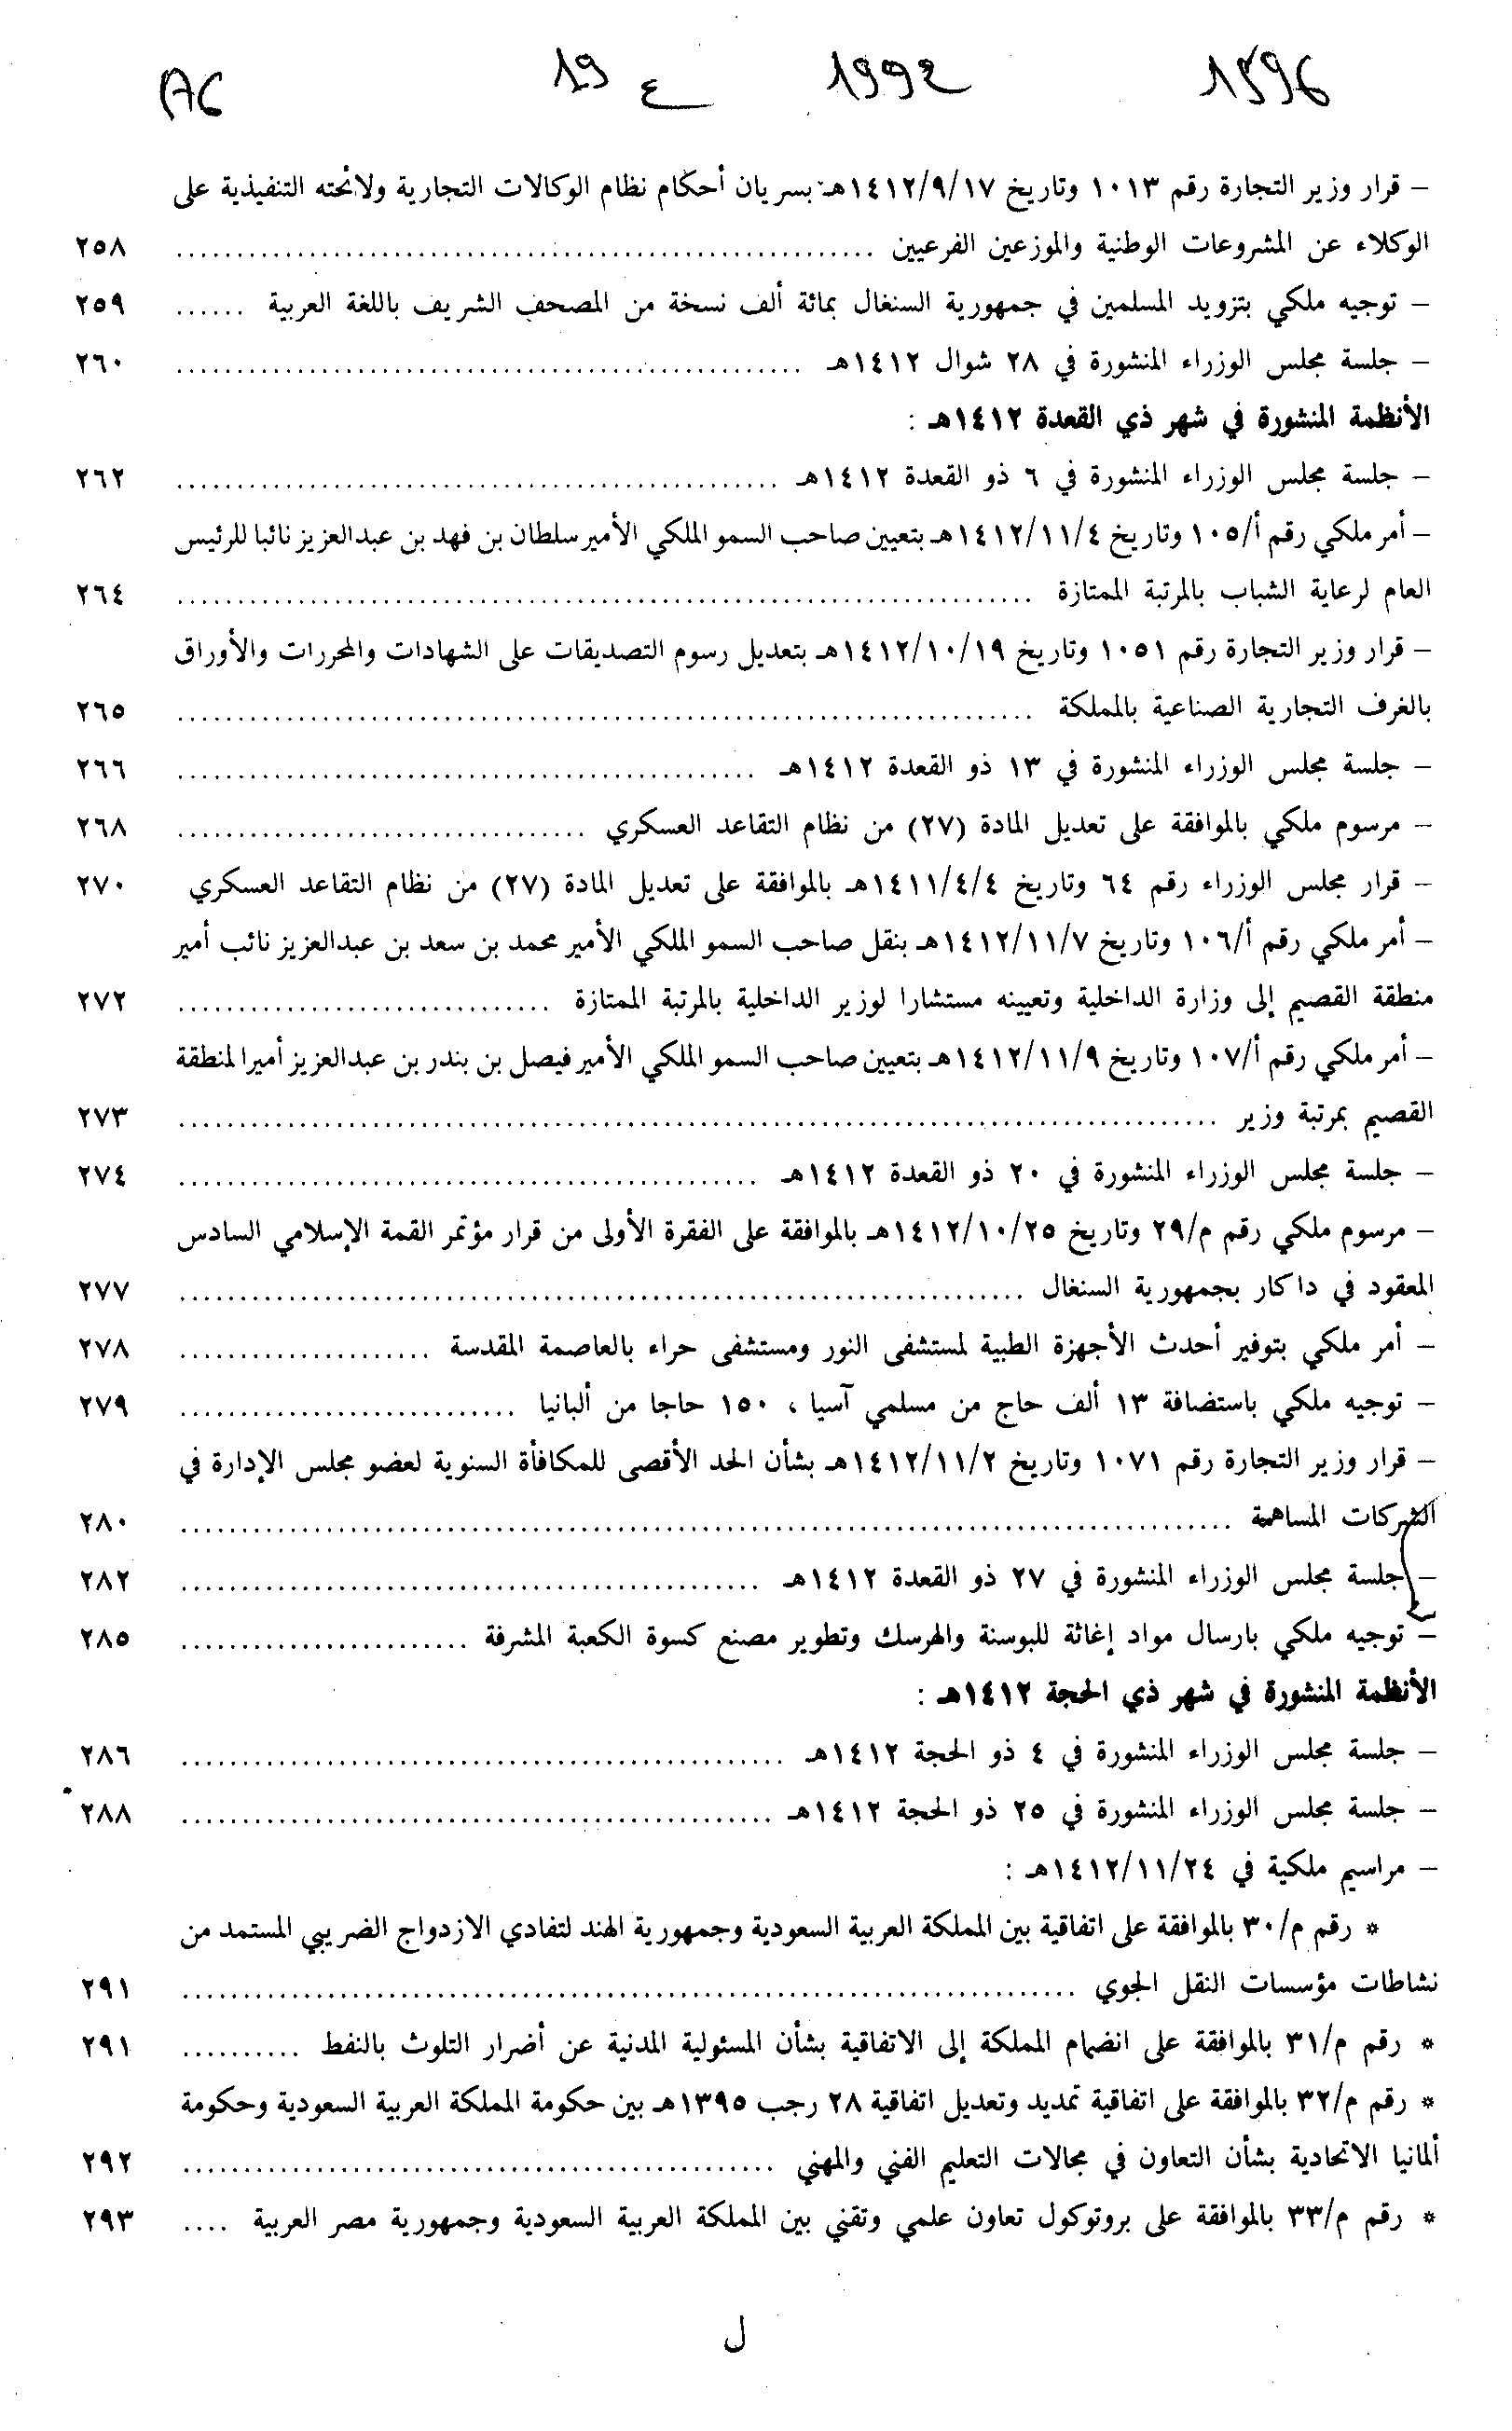 1596 1992 ع 19 A6
– قرار وزير التجارة رقم ١٠١٣ وتاريخ ١٤١٢/٩/١٧هـ بسريان أحكام نظام الوكالات التجارية ولائحته التنفيذية على
الوكلاء عن المشروعات الوطنية والموزعين الفرعيين .......................................................... ٢٥٨
– توجيه ملكي بتزويد المسلمين في جمهورية السنغال بمائة ألف نسخة من المصحف الشريف باللغة العربية ...... ٢٥٩
– جلسة مجلس الوزراء المنشورة في ٢٨ شوال ١٤١٢هـ .................................................... ٢٦٠
الأنظمة المنشورة في شهر ذي القعدة ١٤١٢هـ :
– جلسة مجلس الوزراء المنشورة في ٦ ذو القعدة ١٤١٢هـ .................................................. ٢٦٢
– أمر ملكي رقم أ/١٠٥ وتاريخ ١٤١٢/١١/٤هـ بتعيين صاحب السمو الملكي الأمير سلطان بن فهد بن عبدالعزيز نائبا للرئيس
العام لرعاية الشباب بالمرتبة الممتازة ....................................................................... ٢٦٤
– قرار وزير التجارة رقم ١٠٥١ وتاريخ ١٤١٢/١٠/١٩هـ بتعديل رسوم التصديقات على الشهادات والمحررات والأوراق
بالغرف التجارية الصناعية بالمملكة ....................................................................... ٢٦٥
– جلسة مجلس الوزراء المنشورة في ١٣ ذو القعدة ١٤١٢هـ ................................................ ٢٦٦
– مرسوم ملكي بالموافقة على تعديل المادة (٢٧) من نظام التقاعد العسكري .................................. ٢٦٨
– قرار مجلس الوزراء رقم ٦٤ وتاريخ ١٤١١/٤/٤هـ بالموافقة على تعديل المادة (٢٧) من نظام التقاعد العسكري ٢٧٠
– أمر ملكي رقم أ/١٠٦ وتاريخ ١٤١٢/١١/٧هـ بنقل صاحب السمو الملكي الأمير محمد بن سعد بن عبدالعزيز نائب أمير
منطقة القصيم إلى وزارة الداخلية وتعيينه مستشارا لوزير الداخلية بالمرتبة الممتازة ............................... ٢٧٢
– أمر ملكي رقم أ/١٠٧ وتاريخ ١٤١٢/١١/٩هـ بتعيين صاحب السمو الملكي الأمير فيصل بن بندر بن عبدالعزيز أميرا لمنطقة
القصيم بمرتبة وزير ...................................................................................... ٢٧٣
– جلسة مجلس الوزراء المنشورة في ٢٠ ذو القعدة ١٤١٢هـ ................................................ ٢٧٤
– مرسوم ملكي رقم م/٢٩ وتاريخ ١٤١٢/١٠/٢٥هـ بالموافقة على الفقرة الأولى من قرار مؤتمر القمة الإسلامي السادس
المعقود في داكار بجمهورية السنغال ...................................................................... ٢٧٧
– أمر ملكي بتوفير أحدث الأجهزة الطبية لمستشفى النور ومستشفى حراء بالعاصمة المقدسة ..................... ٢٧٨
– توجيه ملكي باستضافة ١٣ ألف حاج من مسلمي آسيا ، ١٥٠ حاجا من ألبانيا ............................ ٢٧٩
– قرار وزير التجارة رقم ١٠٧١ وتاريخ ١٤١٢/١١/٢هـ بشأن الحد الأقصى للمكافأة السنوية لعضو مجلس الإدارة في
الشركات المساهمة ....................................................................................... ٢٨٠
– جلسة مجلس الوزراء المنشورة في ٢٧ ذو القعدة ١٤١٢هـ ................................................ ٢٨٢
– توجيه ملكي بارسال مواد إغاثة للبوسنة والهرسك وتطوير مصنع كسوة الكعبة المشرفة ........................ ٢٨٥
الأنظمة المنشورة في شهر ذي الحجة ١٤١٢هـ :
– جلسة مجلس الوزراء المنشورة في ٤ ذو الحجة ١٤١٢هـ .................................................. ٢٨٦
– جلسة مجلس الوزراء المنشورة في ٢٥ ذو الحجة ١٤١٢هـ ................................................. ٢٨٨
– مراسيم ملكية في ١٤١٢/١١/٢٤هـ :
* رقم م/٣٠ بالموافقة على اتفاقية بين المملكة العربية السعودية وجمهورية الهند لتفادي الازدواج الضريبي المستمد من
نشاطات مؤسسات النقل الجوي .......................................................................... ٢٩١
* رقم م/٣١ بالموافقة على انضمام المملكة إلى الاتفاقية بشأن المسئولية المدنية عن أضرار التلوث بالنفط .......... ٢٩١
* رقم م/٣٢ بالموافقة على اتفاقية تمديد وتعديل اتفاقية ٢٨ رجب ١٣٩٥هـ بين حكومة المملكة العربية السعودية وحكومة
ألمانيا الاتحادية بشأن التعاون في مجالات التعليم الفني والمهني ................................................. ٢٩٢
* رقم م/٣٣ بالموافقة على بروتوكول تعاون علمي وتقني بين المملكة العربية السعودية وجمهورية مصر العربية .... ٢٩٣
ل